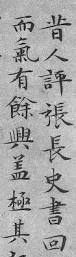 昔人評張長史書回
而氣有餘興盖極其